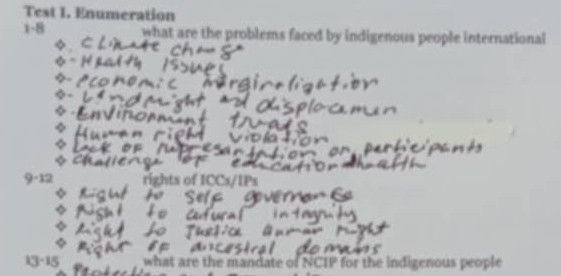 Test I. Enumeration
1-8 what are the problems faced by indigenous people international
❖ Climate change
❖ Health issues
❖ economic marginaligation
❖ Land right and displacemen
❖ Environment treats
❖ Human right violation
❖ Lack of represantation or participants
❖ challenge of education & health
9-12 rights of ICCs/IPs
❖ Right to self governance
❖ Right to cutural intagrity
❖ Right to Justice human right
❖ Right of ancestral domains
13-15 what are the mandate of NCIP for the indigenous people